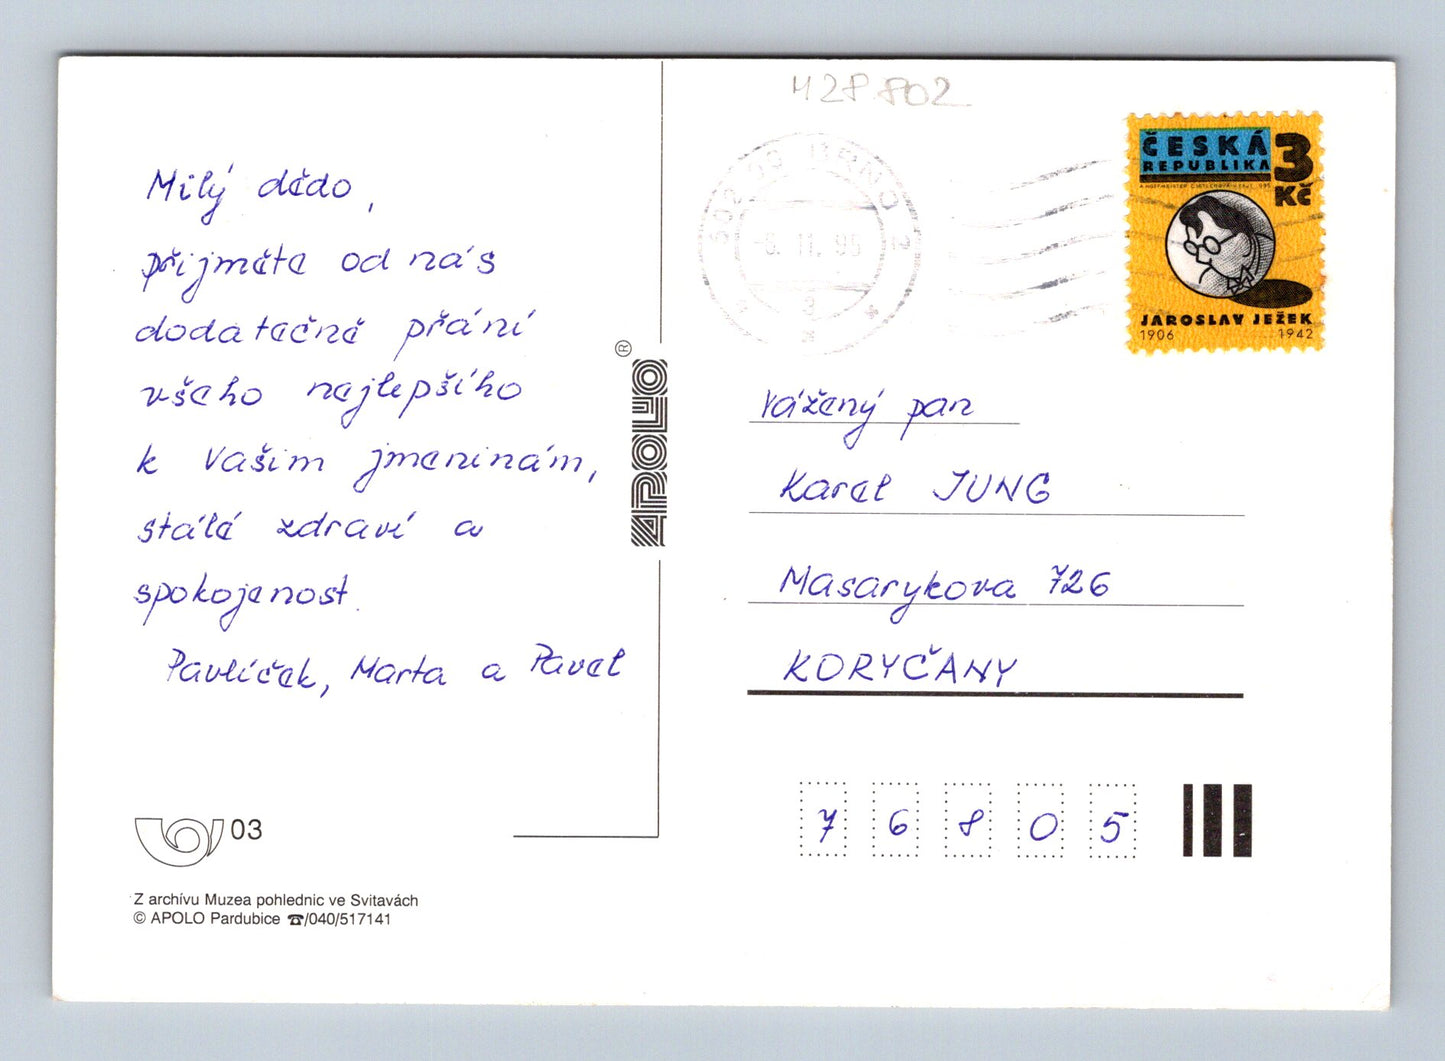 428 802
Milý dědo,
přijměte od nás
dodatečné přání
všeho nejlepšího
k Vašim jmeninám,
stálé zdraví a
spokojenost.
Pavlíček, Marta a Pavel
03
Z archívu Muzea pohlednic ve Svitavách
© APOLO Pardubice ☎/040/517141
APOLO ®
BRNO 2
-6. 11. 95
ČESKÁ
REPUBLIKA
3
Kč
JAROSLAV JEŽEK
1906 1942
Vážený pan
Karel JUNG
Masarykova 726
KORYČANY
7 6 8 0 5